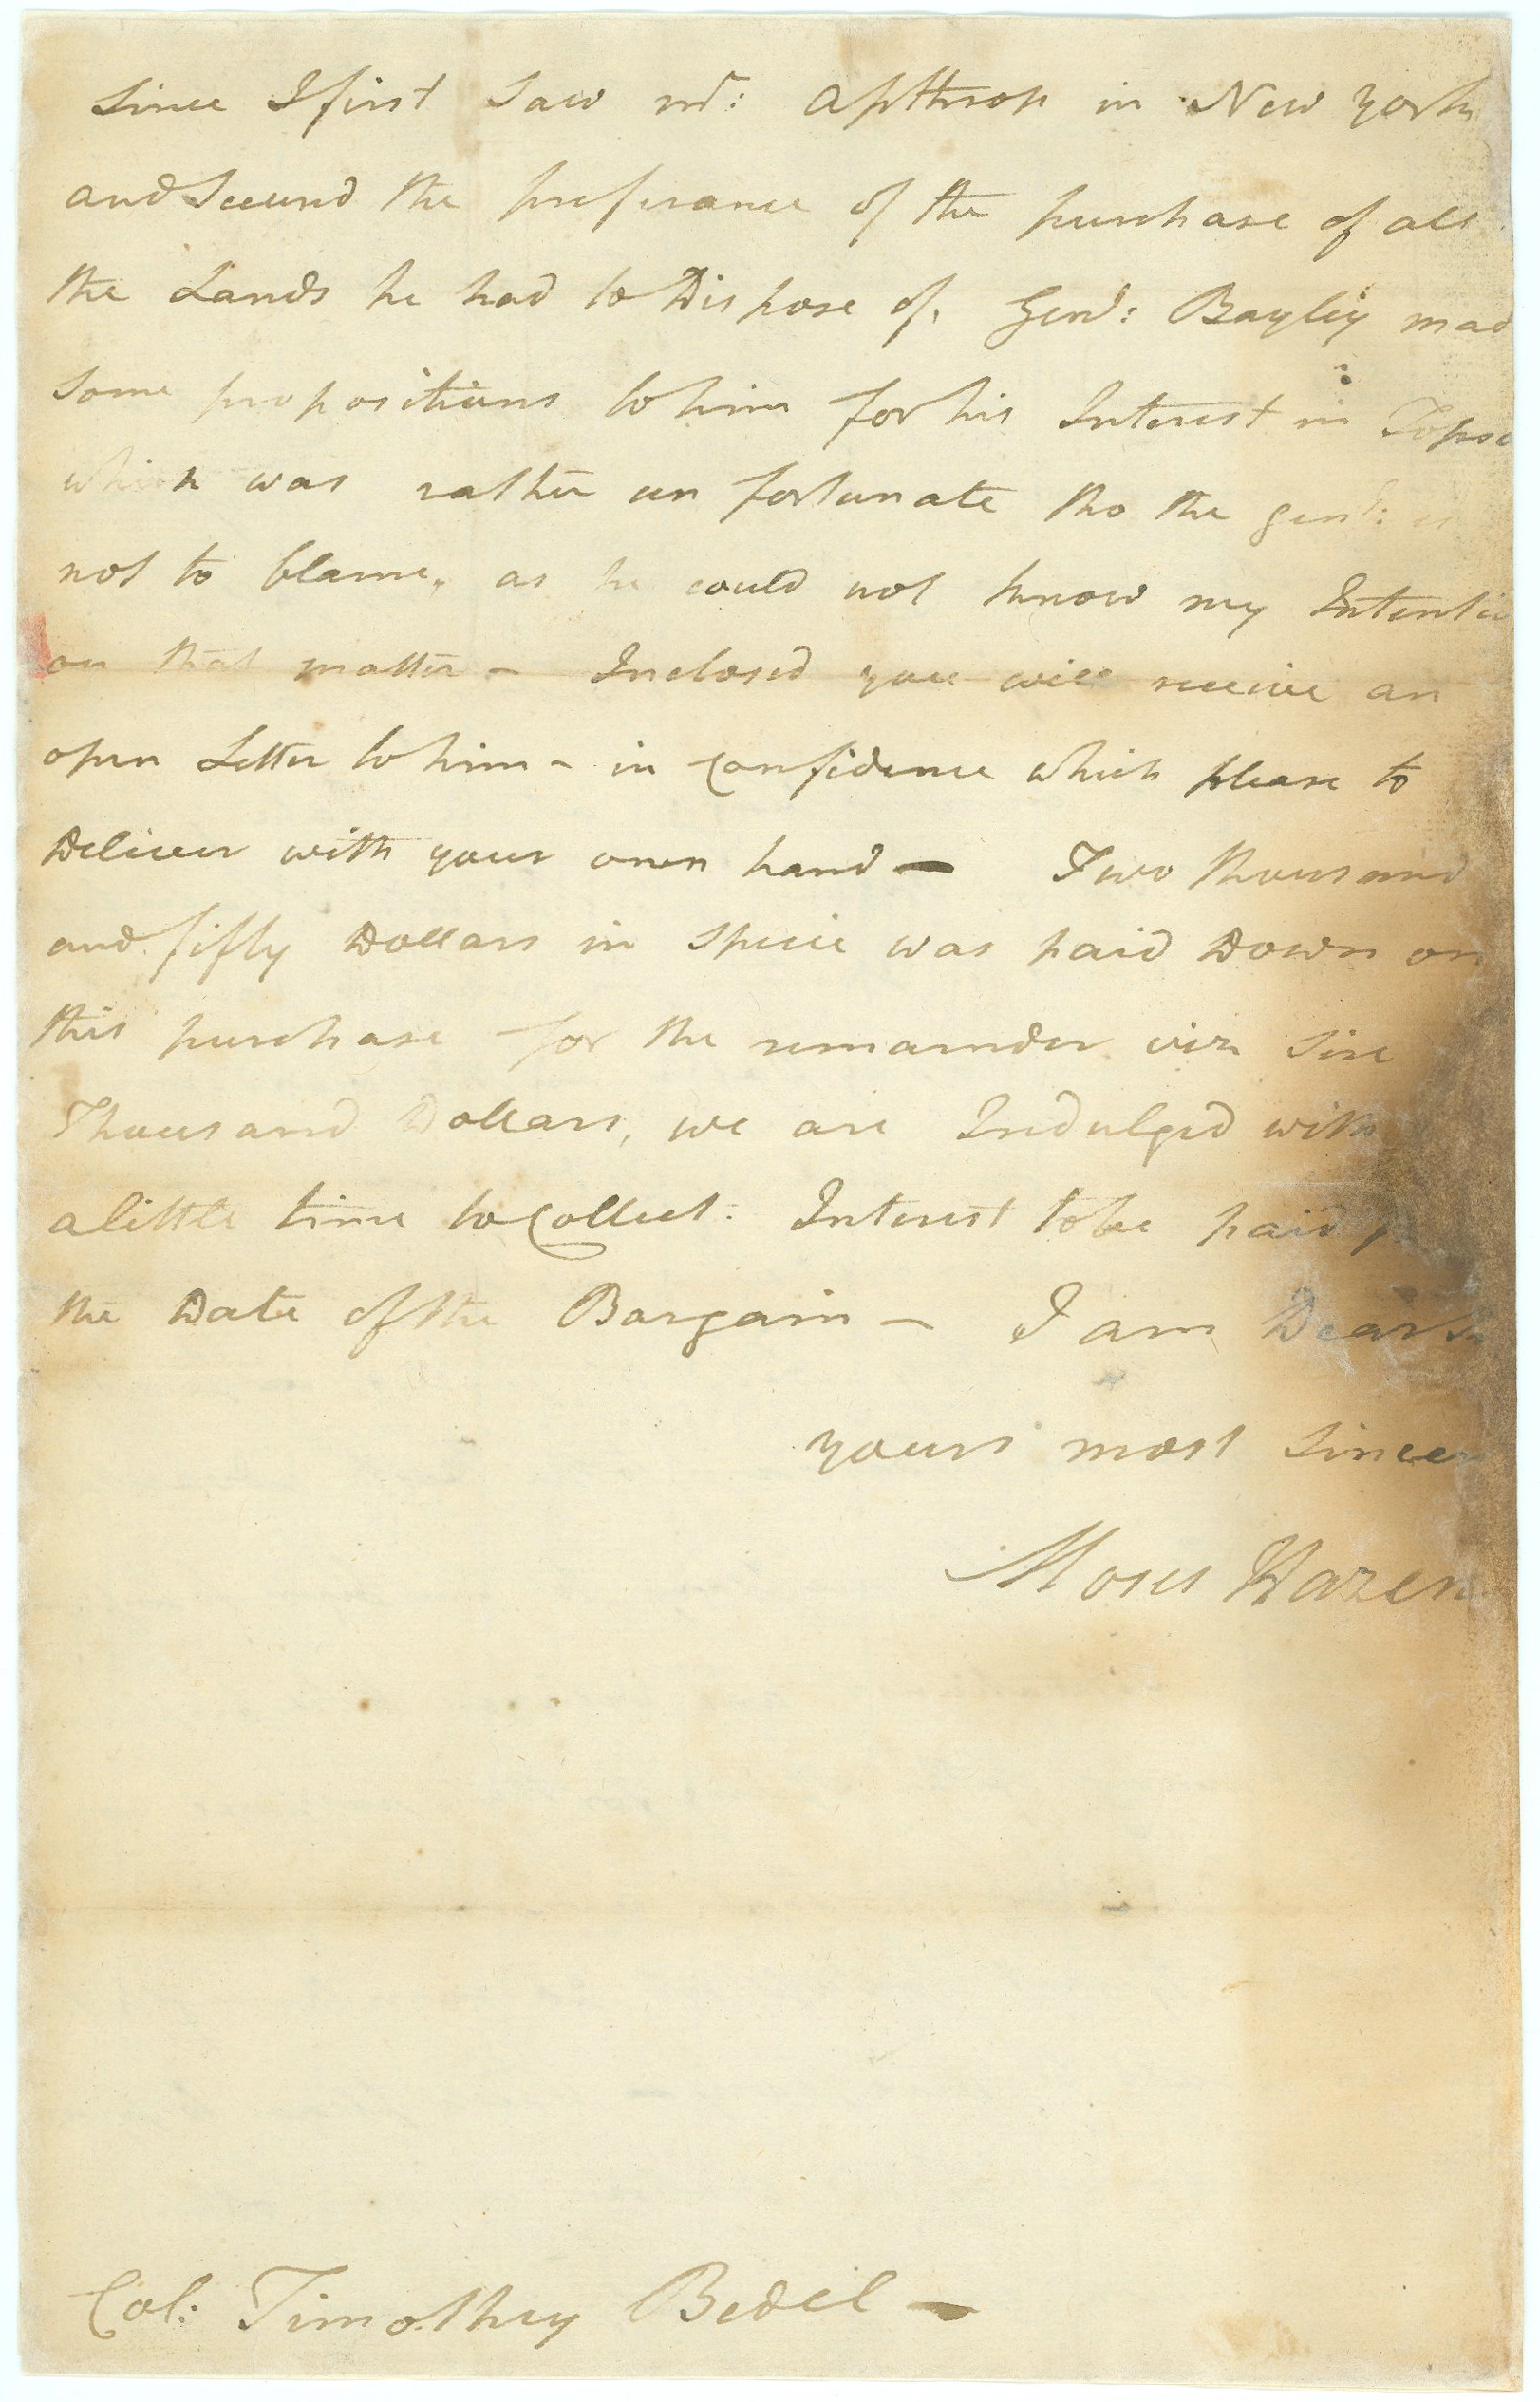 Since I first Saw mr: Apthrop in New York
and Secured the preferance of the purchase of all
the Lands he had to Dispose of. Genl: Bayley mad
Some propositions to him for his Interest in Topse
which was rather un fortunate tho the genl: is
not to blame, as he could not know my Intentio
on that matter – Inclosed you will receive an
open Letter to him – in Confidence which please to
Deliver with your own hand — Two thousand
and fifty Dollars in Specie was paid Down on
this purchase for the remainder viz Six
Thousand Dollars, we are Indulged with
a little time to Collect. Interest to be paid
the Date of the Bargain – I am Dear Sr
yours most Sincer
Moses Hazen
Col: Timothey Bedel —